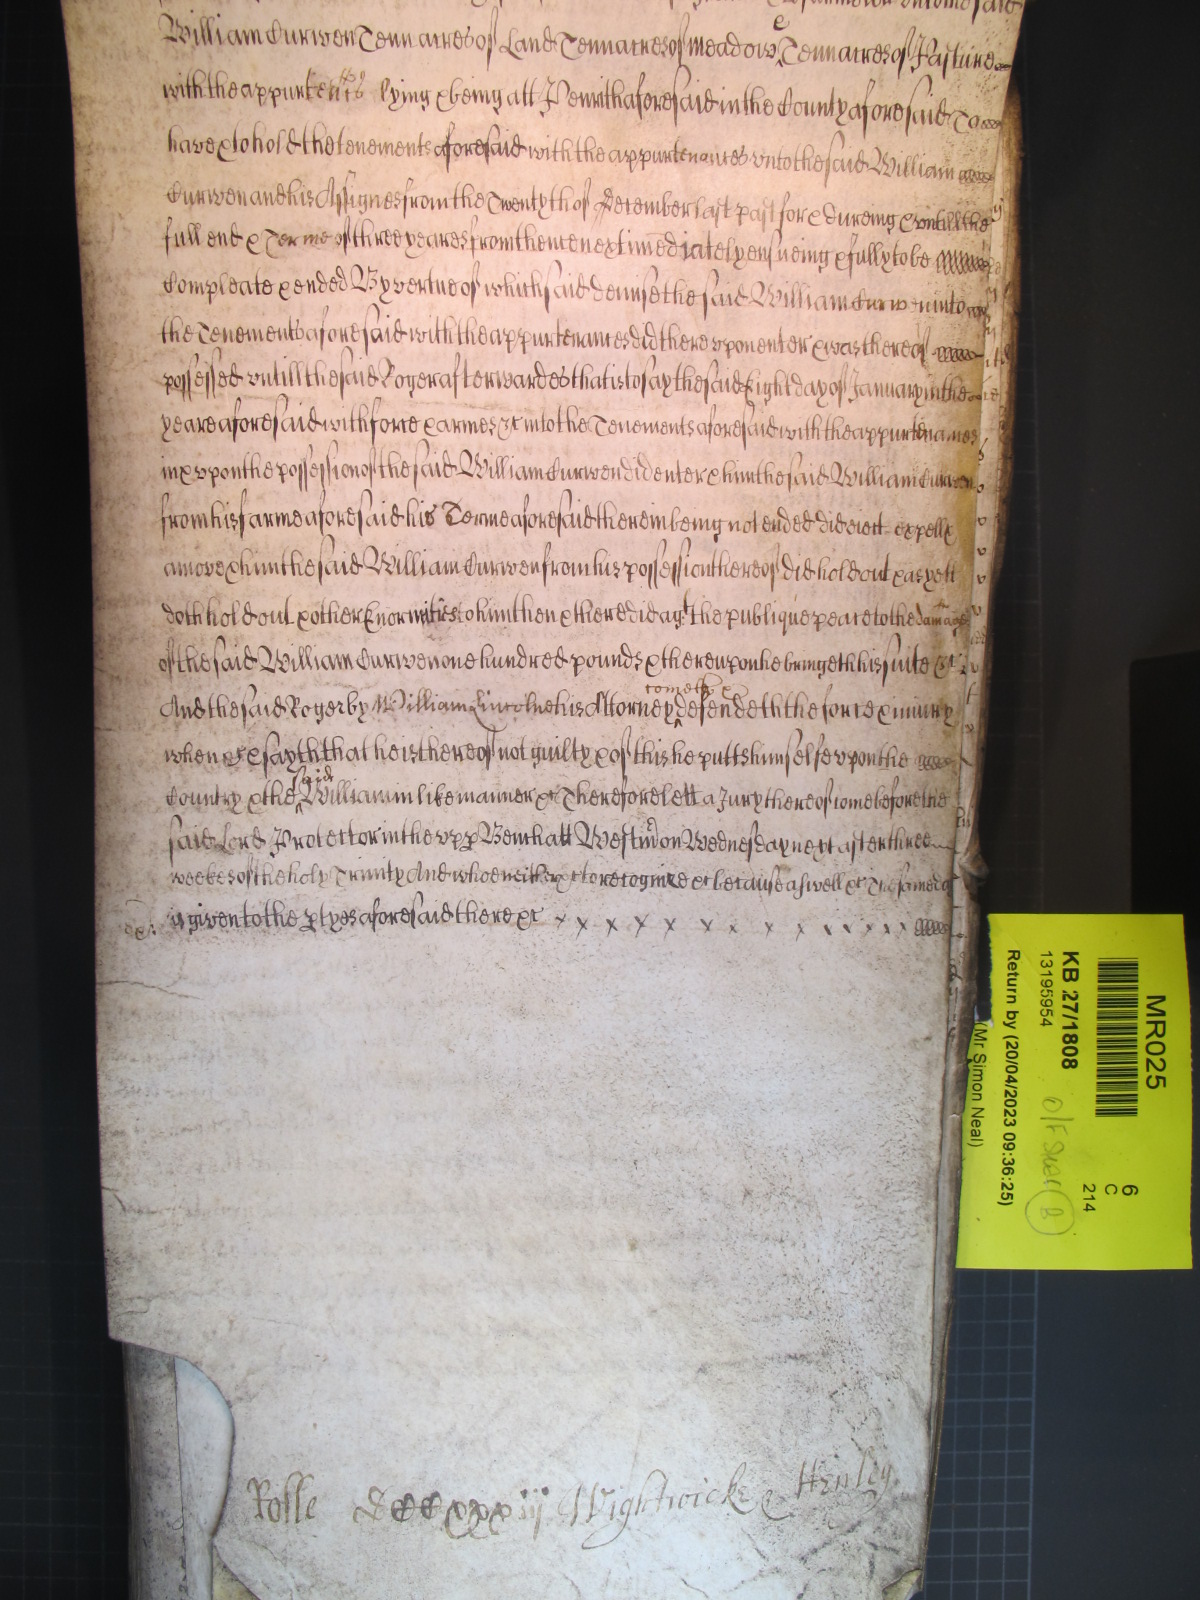 William Curwen Tenn acres of Land Tenn acres of meadowe & Tenn acres of Pasture
with the appurtents lying & being att Penrith aforesaid in the County aforesaid To
have & to hold the tenements aforesaid with the appurtenances unto the said William
Curwen and his Assignes from the Twentyth of December last past for & dureing & untill the
full end & Terme of three yeares from thence next imediately ensueing & fully to be
Compleate & ended By vertue of which said demise the said William Curwen into
the Tenements aforesaid with the appurtenances did thereupon enter & was thereof
possessed untill the said Roger afterwardes that is to say the said Eight day of January in the
yeare aforesaid with force & armes &c into the Tenements aforesaid with the appurtenances
in & upon the possession of the said William Curwen did enter & him the said William Curwen
from his farme aforesaid his Terme aforesaid therein being not ended did eiect expell &
amove & him the said William Curwen from his possession thereof did hold out & as yett
doth hold out & other Enormities to him then & there did agt the publique peace to the damage
of the said William Curwen one hundred pounds & thereupon he bringeth his suite &c
And the said Roger by William Lincolne his Attorney cometh & defendeth the force & iniury
when &c & sayth that he is thereof not guilty & of this he putts himselfe upon the
Country & the said William in like manner &c Therefore lett a Jury thereof come before the
said Lord Protector in the upp Bench att Westmr on Wednesday next after three
weekes of the holy Trinity And whoe neither &c to recognize &c because aswell &c The same day
is given to the ptyes aforesaid there &c
Rolle DCCCxxxiij Wightwicke & Henley
MR025
KB 27/1808
13195954
Return by (20/04/2023 09:36:25)
(Mr Simon Neal)
6
C
214